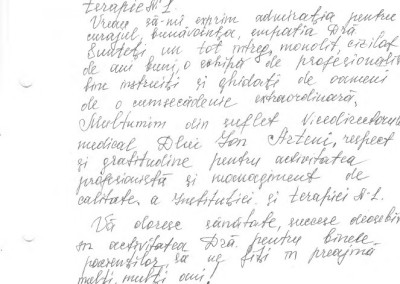 terapie N-1.
Vreau să-mi exprim admirația pentru
curajul, bunăvoința, empatia Dră
Sunteți, un tot întreg, monolit, cizelat
de ani buni, o echipă de profesioniști
bine instruiți și ghidați de oameni
de o cumsecădenie extraordinară.
Mulțumim din suflet Vicedirectorului
medical Dlui Ion Arteni, respect
și gratitudine pentru activitatea
profesionistă și management de
calitate a Instituției și terapiei N-1.
Vă doresc sănătate, succese deosebite
în activitatea Dră pentru binele
pacienților, să ne fiți în preajmă
mulți, mulți ani!